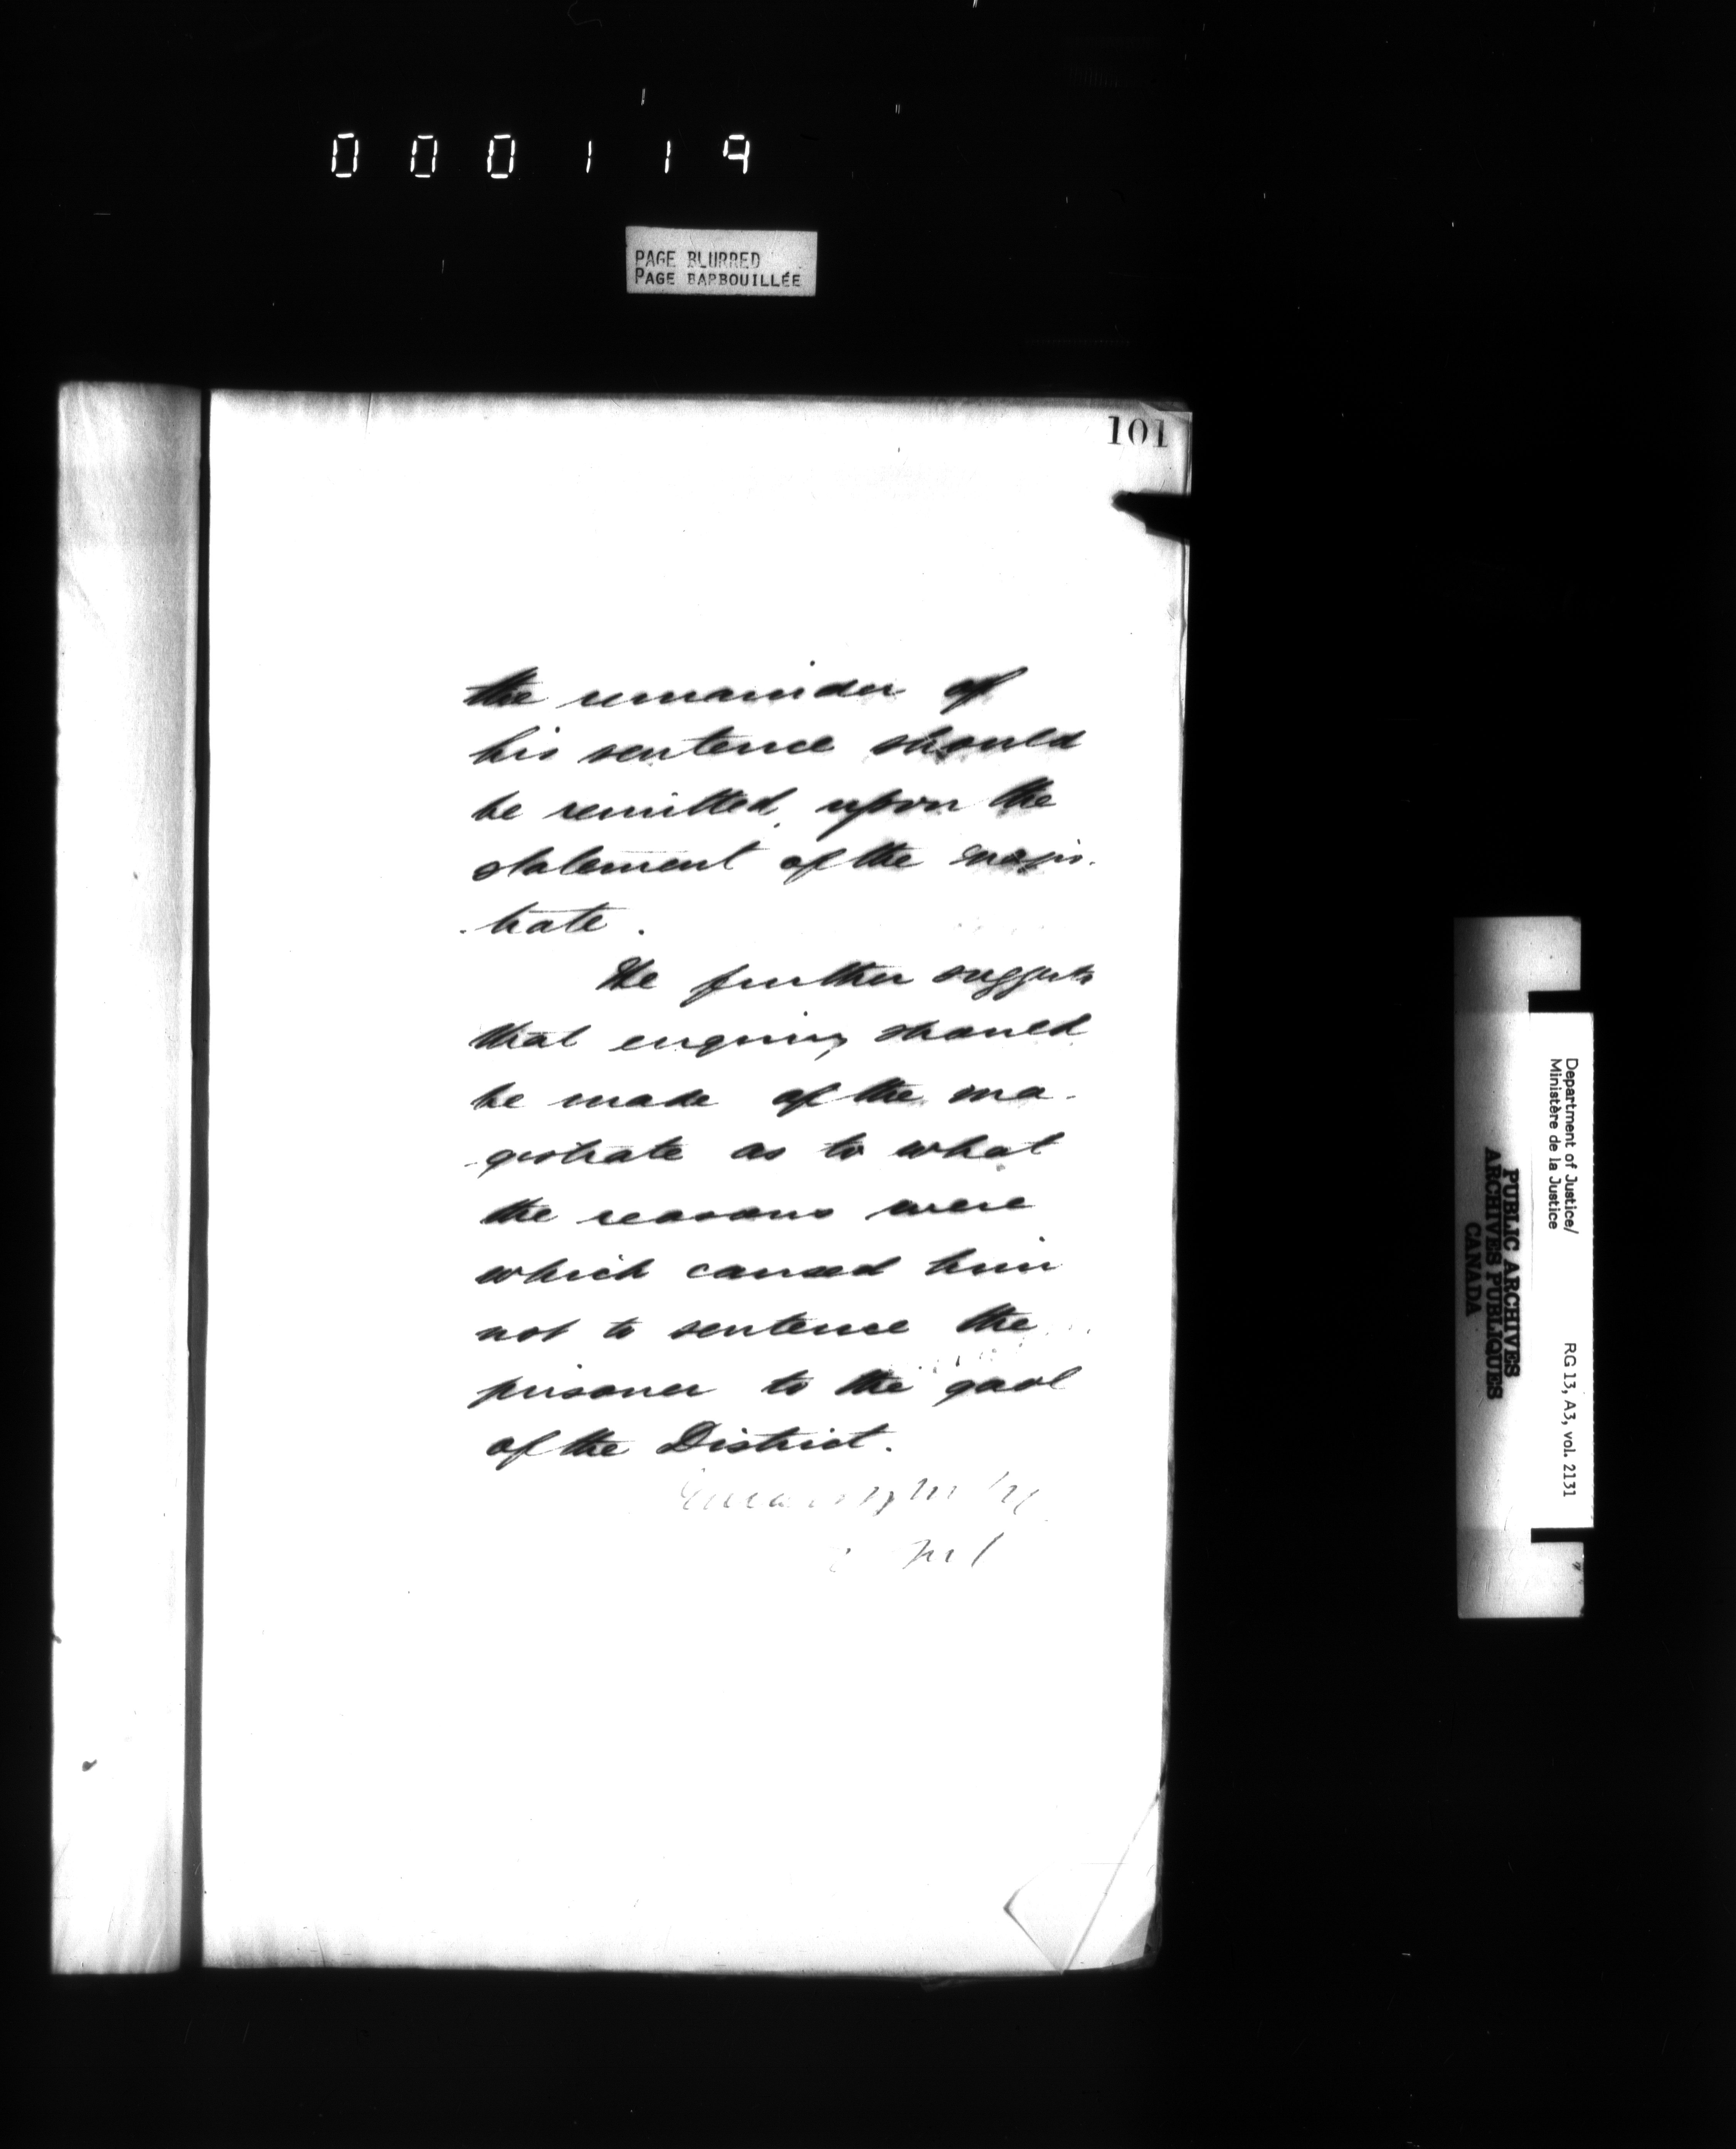 000119
PAGE BLURRED
PAGE BARBOUILLÉE
101
the remainder of
his sentence should
be remitted, upon the
statement of the magis-
-trate.
He further suggests
that enquiry should
be made of the ma-
-gistrate as to what
the reasons were
which caused him
not to sentence the
prisoner to the gaol
of the District.
Department of Justice/
Ministère de la Justice
RG 13, A3, vol. 2131
PUBLIC ARCHIVES
ARCHIVES PUBLIQUES
CANADA